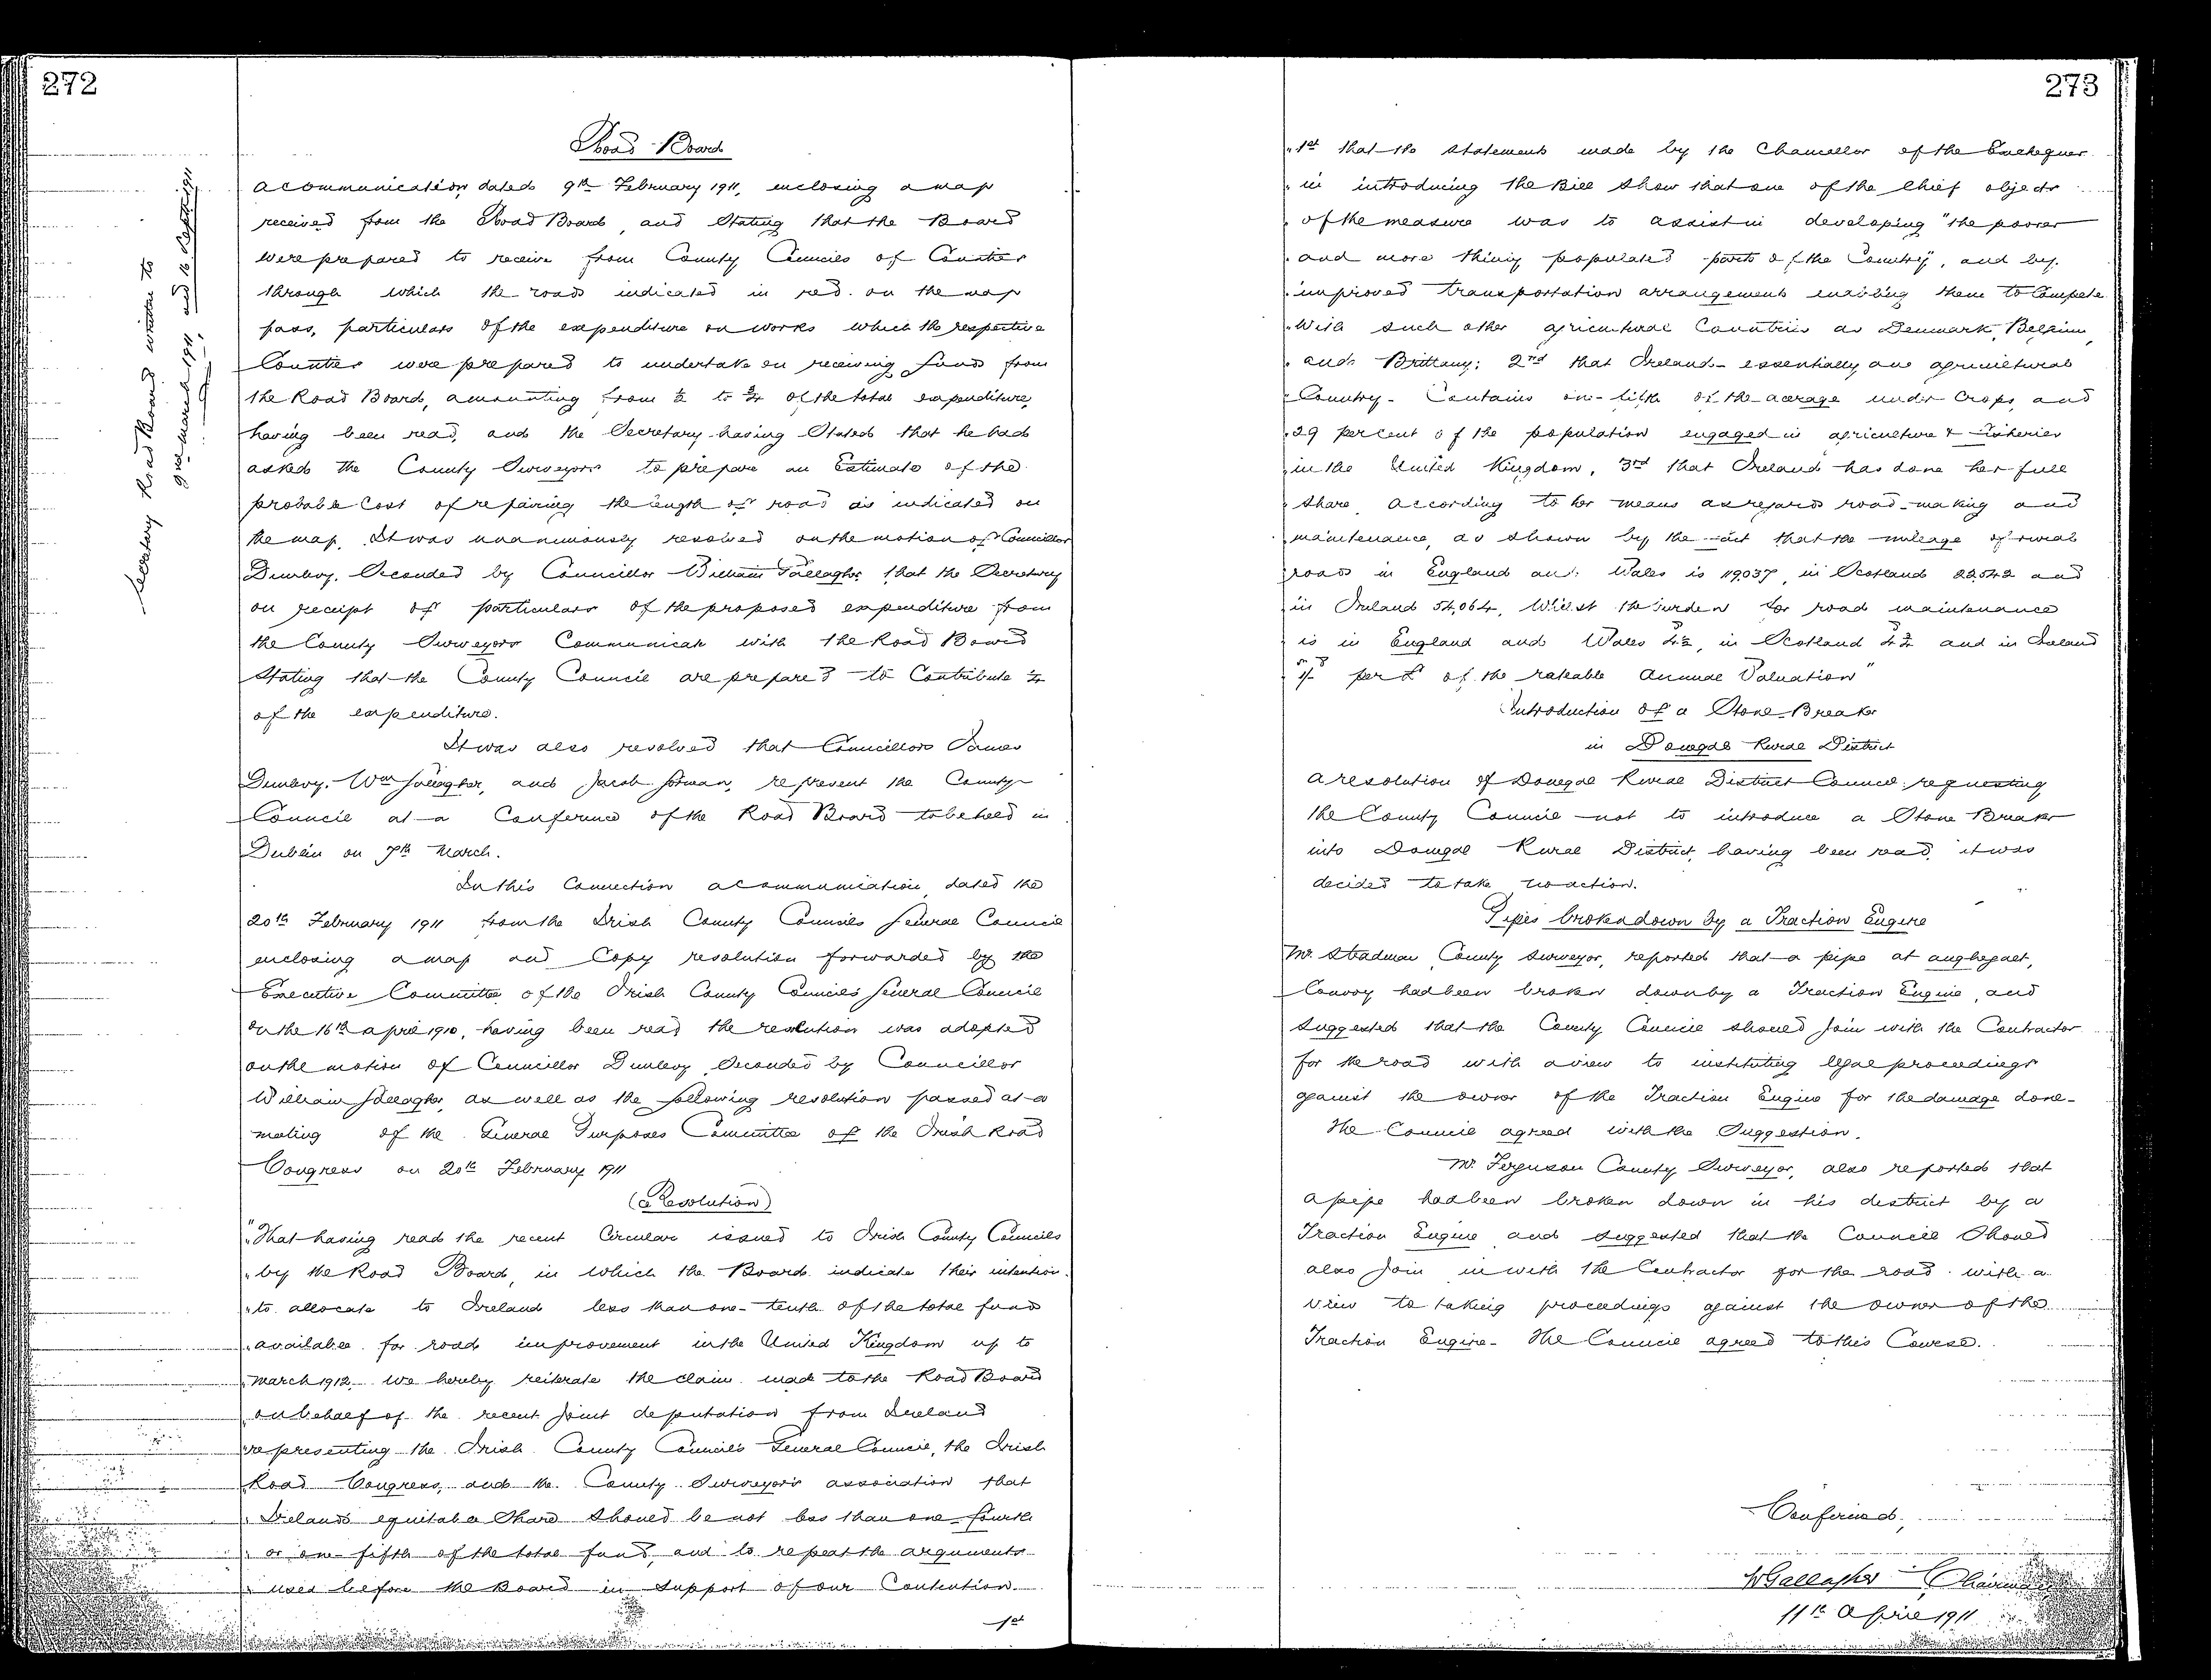 272
Secretary Road Board written to
9th March 1911, and 16 Sept 1911
Road Board
A communication, dated 9th February 1911, enclosing a map
received from the Road Board, and Stating that the Board
were prepared to receive from County Councils of Counties
through which the roads indicated in red on the map
pass, particulars of the expenditure on works which the respective
Counties were prepared to undertake on receiving funds from
the Road Board, amounting from ½ to ¾ of the total expenditure,
having been read, and the Secretary having Stated that he had
asked the County Surveyors to prepare an Estimate of the
probable Cost of repairing the length of road as indicated on
the map. It was unanimously resolved on the motion of Councillor
Dunlevy, Seconded by Councillor William Gallagher, that the Secretary
on receipt of particulars of the proposed expenditure from
the County Surveyors Communicate with the Road Board
Stating that the County Council are prepared to Contribute ¼
of the expenditure.
It was also resolved that Councillors James
Dunlevy, Wm Gallagher, and Jacob Forman, represent the County
Council at a Conference of the Road Board to be held in
Dublin on 7th March.
In this Connection a communication, dated the
20th February 1911 from the Irish County Councils General Council
enclosing a map and Copy resolution forwarded by the
Executive Committee of the Irish County Councils General Council
on the 16th April 1910, having been read the resolution was adopted
on the motion of Councillor Dunlevy Seconded by Councillor
William Gallagher, as well as the following resolution passed at a
meeting of the General Purposes Committee of the Irish Road
Congress on 20th February 1911
(Resolution)
"That having read the recent Circular issued to Irish County Councils
"by the Road Board, in which the Board indicate their intention
"to allocate to Ireland less than one-tenth of the total funds
"available for road improvement in the United Kingdom up to
"March 1912, we hereby reiterate the claim made to the Road Board
"on behalf of the recent joint deputation from Ireland
"representing the Irish County Councils General Council, the Irish
"Road Congress, and the County Surveyors association that
"Irelands equitable Share Should be not less than one-fourth
"or one-fifth of the total fund, and to repeat the arguments
"used before the Board in Support of our Contention.
1st
273
"1st that the Statements made by the Chancellor of the Exchequer
"in introducing the Bill Show that one of the Chief objects
"of the measure was to assist in developing "the poorer
"and more thinly populated parts of the Country", and by
"improved transportation arrangements enabling them to Compete
"With such other agricultural Countries as Denmark, Belgium,
"and Brittany; 2nd that Ireland - essentially an agricultural
"Country - Contains one-fifth of the acerage under Crops, and
"29 per cent of the population engaged in agriculture & Fisheries
"in the United Kingdom, 3rd that Ireland has done her full
"Share according to her means as regards road-making and
"maintenance, as shown by the fact that the mileage of rural
"roads in England and Wales is 119,037 in Scotland 22,542 and
"in Ireland 54,064, Whilst the burden for road maintenance
"is in England and Wales in Scotland and in Ireland
per £ of the rateable Annual Valuation"
Introduction of a Stone-Breaker
in Donegal Rural District
A resolution of Donegal Rural District Council, requesting
the County Council not to introduce a Stone Breaker
into Donegal Rural District, having been read, it was
decided to take no action.
Pipes broken down by a Traction Engine
Mr. Steadman County Surveyor, reported that a pipe at aughegalt,
Convoy had been broken down by a Traction Engine, and
Suggested that the County Council should join with the Contractor
for the road with a view to instituting legal proceedings
against the owner of the Traction Engine for the damage done.
The Council agreed with the Suggestion.
Mr. Ferguson County Surveyor, also reported that
a pipe had been broken down in his district by a
Traction Engine and Suggested that the Council Should
also join in with the Contractor for the road with a
View to taking proceedings against the owner of the
Traction Engine. The Council agreed to this Course.
Confirmed,
W Gallagher Chairman
11th April 1911